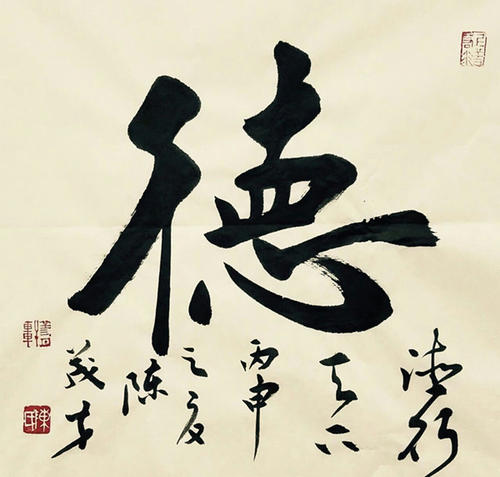 德
德行
天下
丙申
之夏
陈
茂才